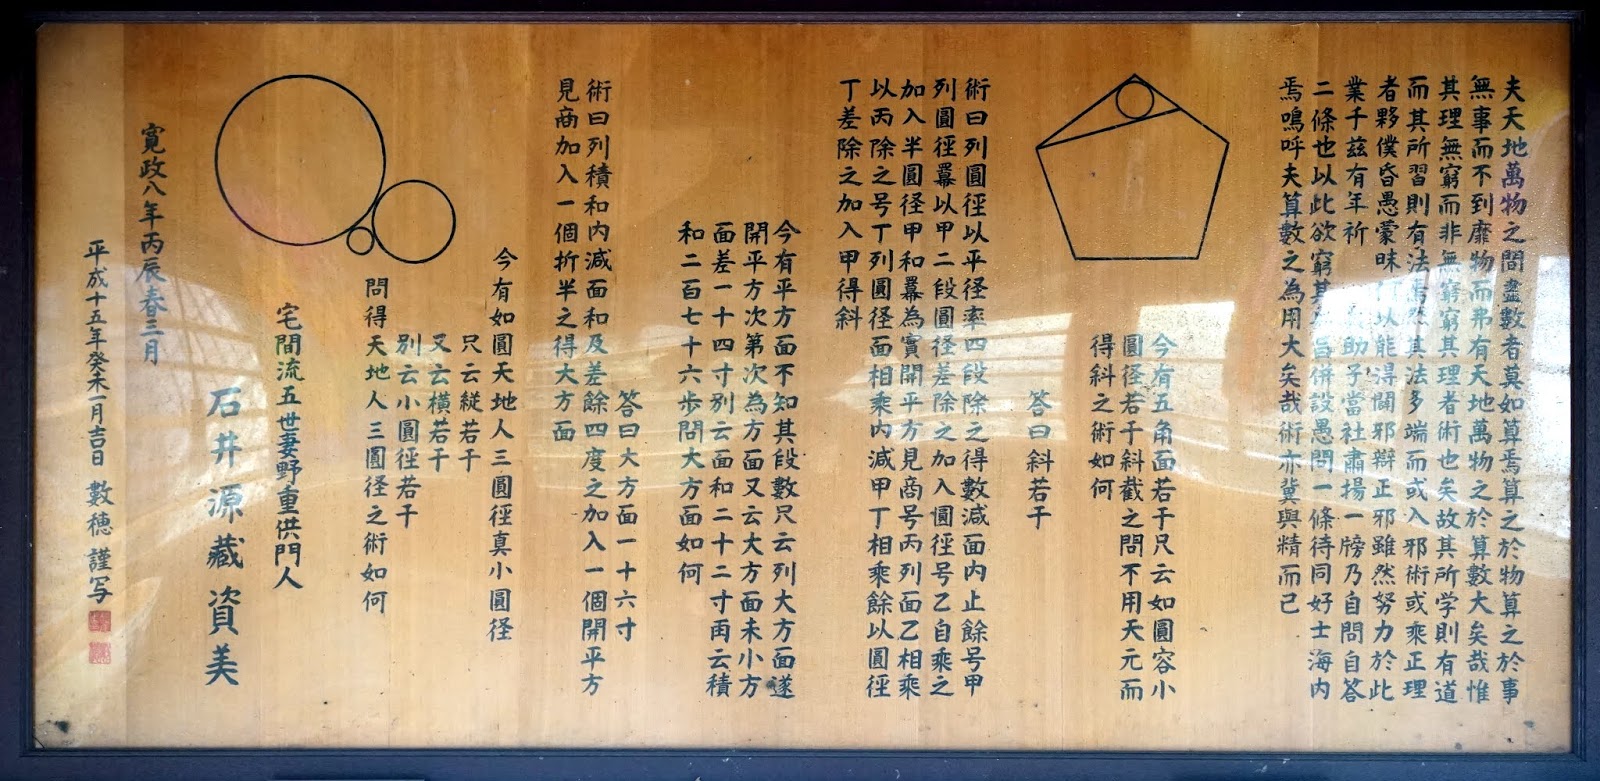 夫天地萬物之間盡數者莫如算焉算之於物算之於事
無事而不到靡物而弗有天地萬物之於算數大矣哉惟
其理無窮而非無窮窮其理者術也矣故其所学則有道
而其所習則有法焉然其法多端而或入邪術或乘正理
者夥僕昏愚蒙昧何以能得闢邪辯正邪雖然努力於此
業于兹有年祈 助予當社肅揚一牓乃自問自答
二條也以此欲窮其 旨併設愚問一條待同好士海内
焉鳴呼夫算數之為用大矣哉術亦冀與精而已
今有五角面若干尺云如圓容小
圓径若干斜截之問不用天元而
得斜之術如何
答曰斜若干
術曰列圓徑以平径率四段除之得數減面内止餘号甲
列圓徑羃以甲二段圓径差除之加入圓徑号乙自乘之
加入半圓径甲和羃為實開平方見商号丙列面乙相乘
以丙除之号丁列圓径面相乘内減甲丁相乘餘以圓径
丁差除之加入甲得斜
今有平方面不知其段數只云列大方面遂
開平方次第次為方面又云大方面未小方
面差一十四寸別云面和二十二寸再云積
和二百七十六歩問大方面如何
答曰大方面一十六寸
術曰列積和内減面和及差餘四度之加入一個開平方
見商加入一個折半之得大方面
今有如圓天地人三圓徑真小圓径
只云縦若干
又云横若干
別云小圓径若干
問得天地人三圓径之術如何
宅間流五世妻野重供門人
石井源藏資美
寛政八年丙辰春三月
平成十五年癸未一月吉日 數穂 謹写